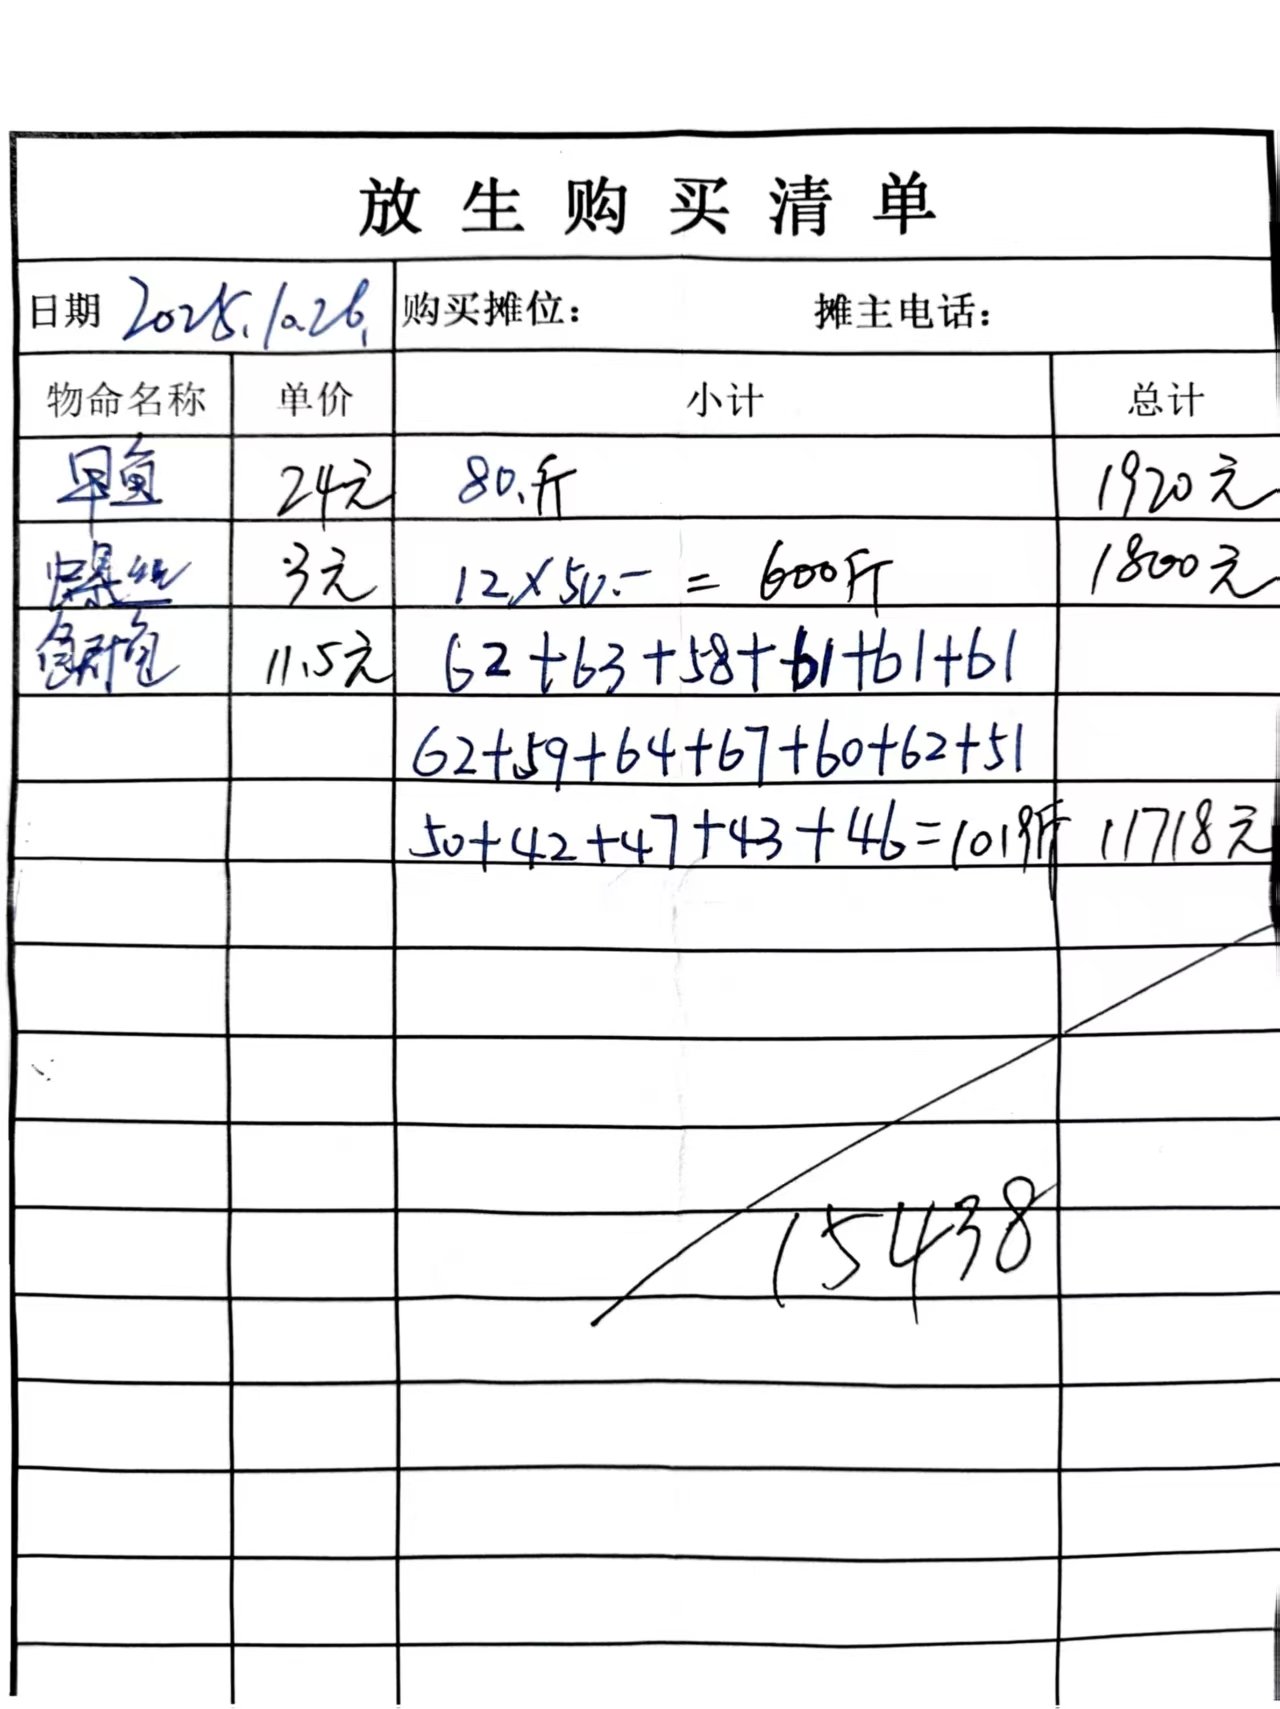 放生购买清单
日期 2025.10.26. 购买摊位： 摊主电话：
物命名称 单价 小计 总计
早鱼 24元 80.斤 1920元
螺丝 3元 12×50- = 600斤 1800元
11.5元 62+63+58+61+61+61
62+59+64+67+60+62+51
50+42+47+43+46=1019斤 11718元
15438